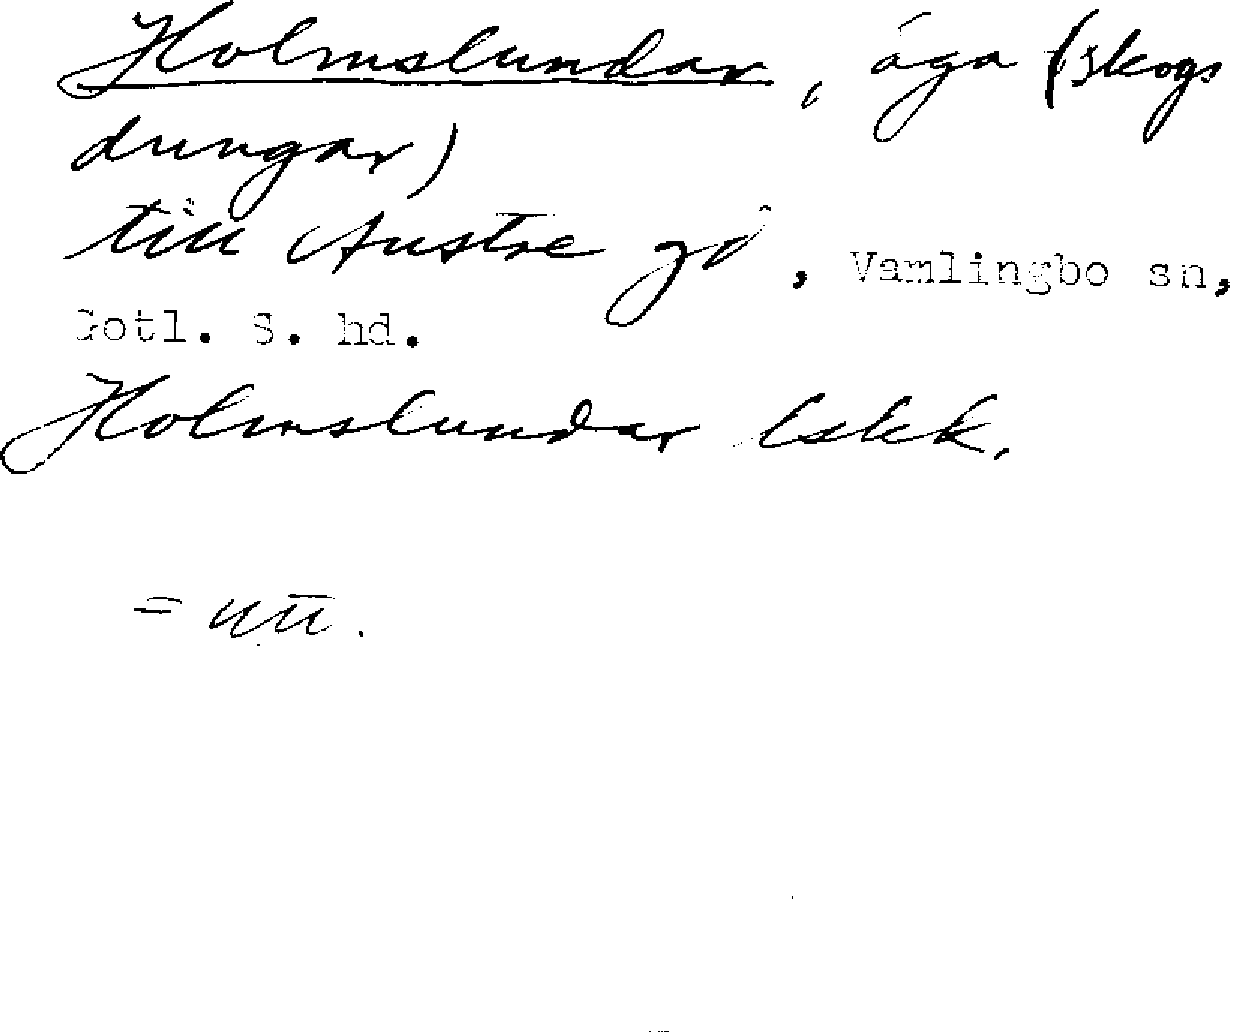 Holmslundar, äga (skogs
dungar)
till Austre gd, Vamlingbo sn,
Gotl. S. hd.
Holmslundar Lskk.
= utt.